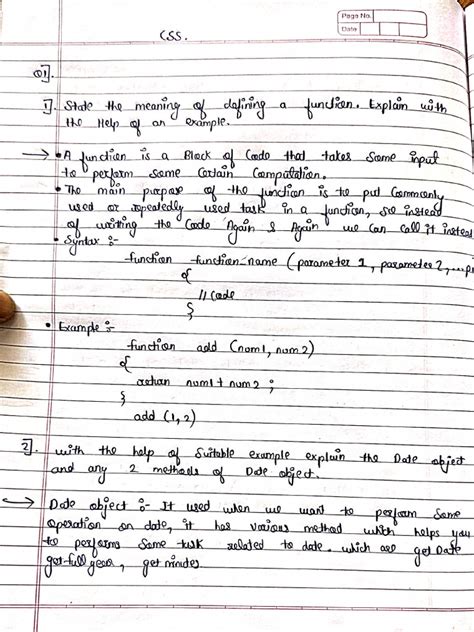 Page No.
Date
CSS.
Q1].
1]. State the meaning of defining a function. Explain with
the Help of an example.
→ • A function is a Block of Code that takes Some input
to perform Some Certain Computation.
• The main purpose of the function is to put Commonly
used or repeatedly used task in a function, so instead
of writing the Code Again & Again we can Call it instead
• Syntax :-
function function-name (parameter 1, parameter 2, ...p
{
// Code
}
• Example :-
function add (num1, num2)
{
return num1 + num2 ;
}
add (1,2)
2]. with the help of Suitable example explain the Date object
and any 2 methods of Date object.
→ Date object :- It used when we want to perform Some
operation on date, it has various method which helps you
to perform Some task related to date. which are get Date
get-full year, get minutes.